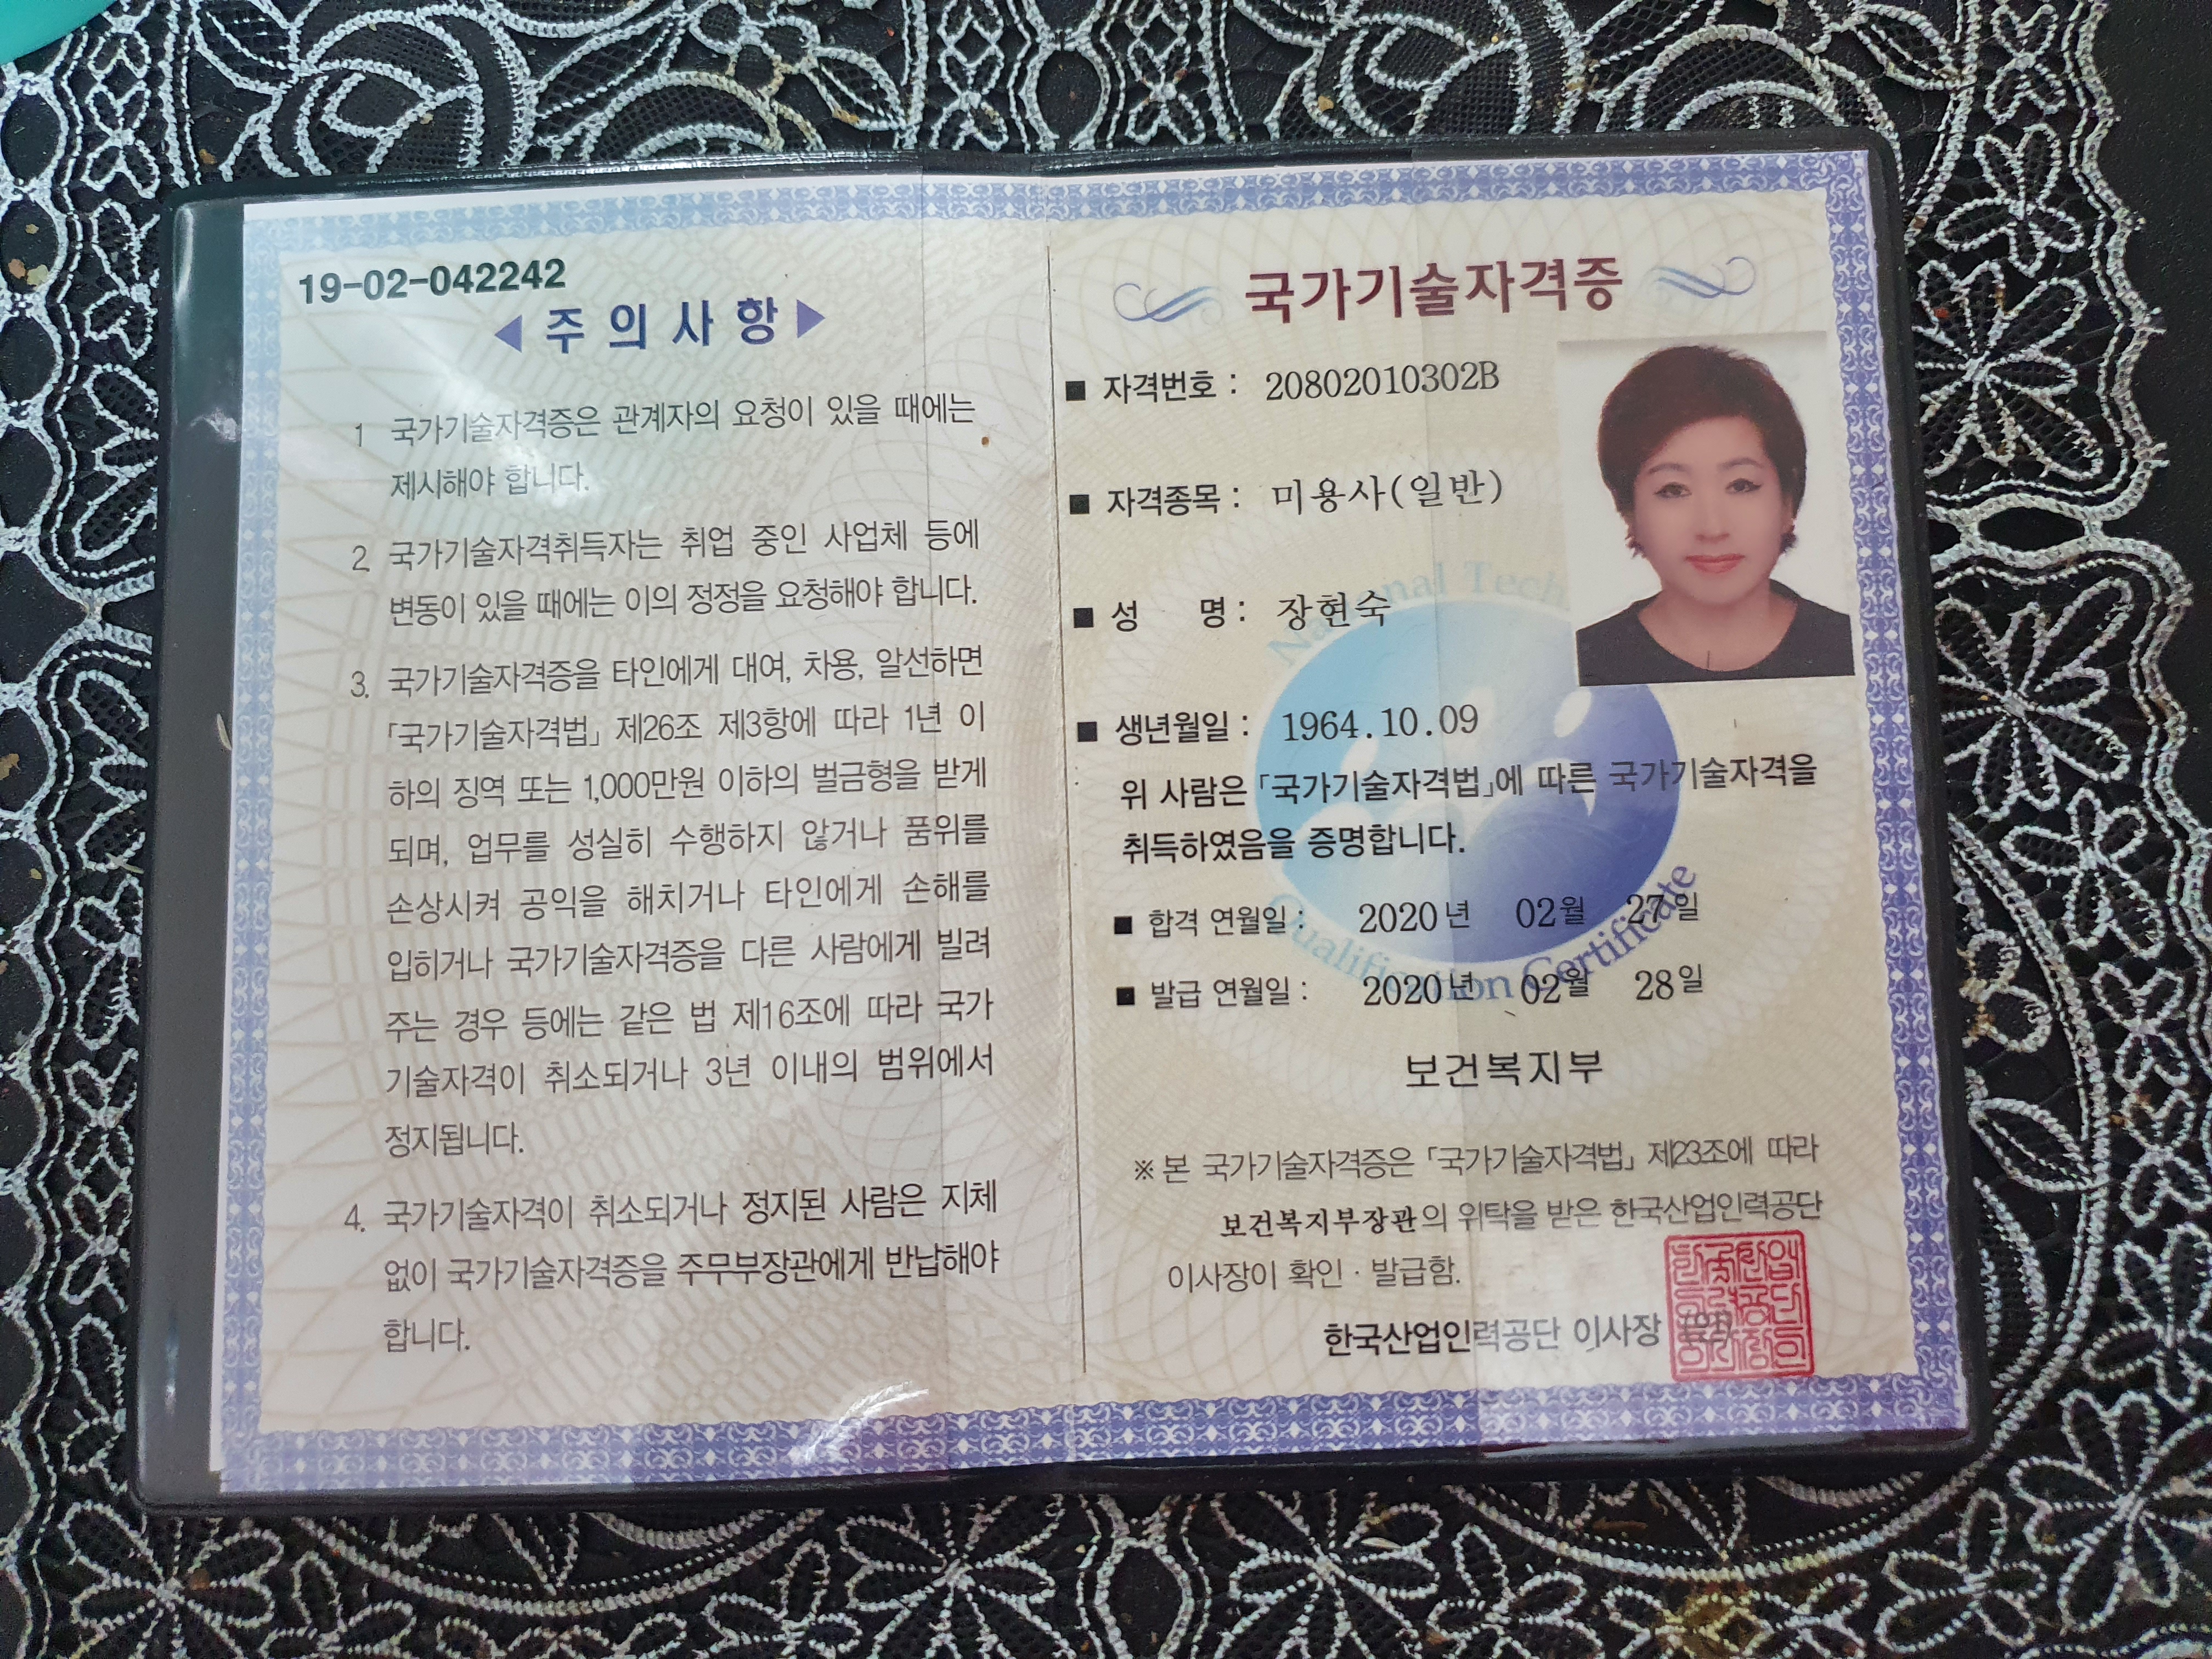 19-02-042242
◀ 주 의 사 항 ▶
1 국가기술자격증은 관계자의 요청이 있을 때에는
제시해야 합니다.
2. 국가기술자격취득자는 취업 중인 사업체 등에
변동이 있을 때에는 이의 정정을 요청해야 합니다.
3. 국가기술자격증을 타인에게 대여, 차용, 알선하면
「국가기술자격법」 제26조 제3항에 따라 1년 이
하의 징역 또는 1,000만원 이하의 벌금형을 받게
되며, 업무를 성실히 수행하지 않거나 품위를
손상시켜 공익을 해치거나 타인에게 손해를
입히거나 국가기술자격증을 다른 사람에게 빌려
주는 경우 등에는 같은 법 제16조에 따라 국가
기술자격이 취소되거나 3년 이내의 범위에서
정지됩니다.
4. 국가기술자격이 취소되거나 정지된 사람은 지체
없이 국가기술자격증을 주무부장관에게 반납해야
합니다.
국가기술자격증
■ 자격번호 : 20802010302B
■ 자격종목 : 미용사(일반)
■ 성 명 : 장현숙
■ 생년월일 : 1964.10.09
위 사람은 「국가기술자격법」에 따른 국가기술자격을
취득하였음을 증명합니다.
■ 합격 연월일 : 2020년 02월 27일
■ 발급 연월일 : 2020년 02월 28일
보건복지부
※ 본 국가기술자격증은 「국가기술자격법」 제23조에 따라
보건복지부장관의 위탁을 받은 한국산업인력공단
이사장이 확인 · 발급함.
한국산업인력공단 이사장
Qualification Certificate